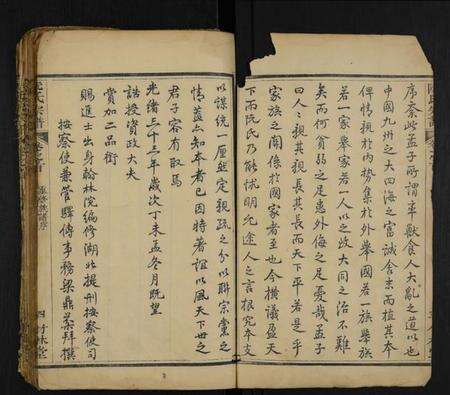 序紊此孟子所謂率獸食人大亂之道以也
中國九州之大四海之富誠舍末而植其本
俾情親於內勢集於外舉國若一族舉族
若一家舉家若一人以之致大同之治不難
矣而何貧弱之足患外侮之足憂哉孟子
曰人人親其親長其長而天下平若是乎
家族之關係於國家者至也今橫議盈天
下而阮氏乃能恍明允途人之言根究本支
以謀統一厘並定親疏之分以聯宗黨之
情蓋知本者已因特著誼以風天下世之
君子容有取焉
光緒三十三年歲次丁未孟冬月既望
誥授資政大夫
賞加二品銜
賜進士出身翰林院編修湖北提刑按察使司
按察使兼管驛傳事務梁鼎棻拜撰
阮氏宗譜
四 竹林堂